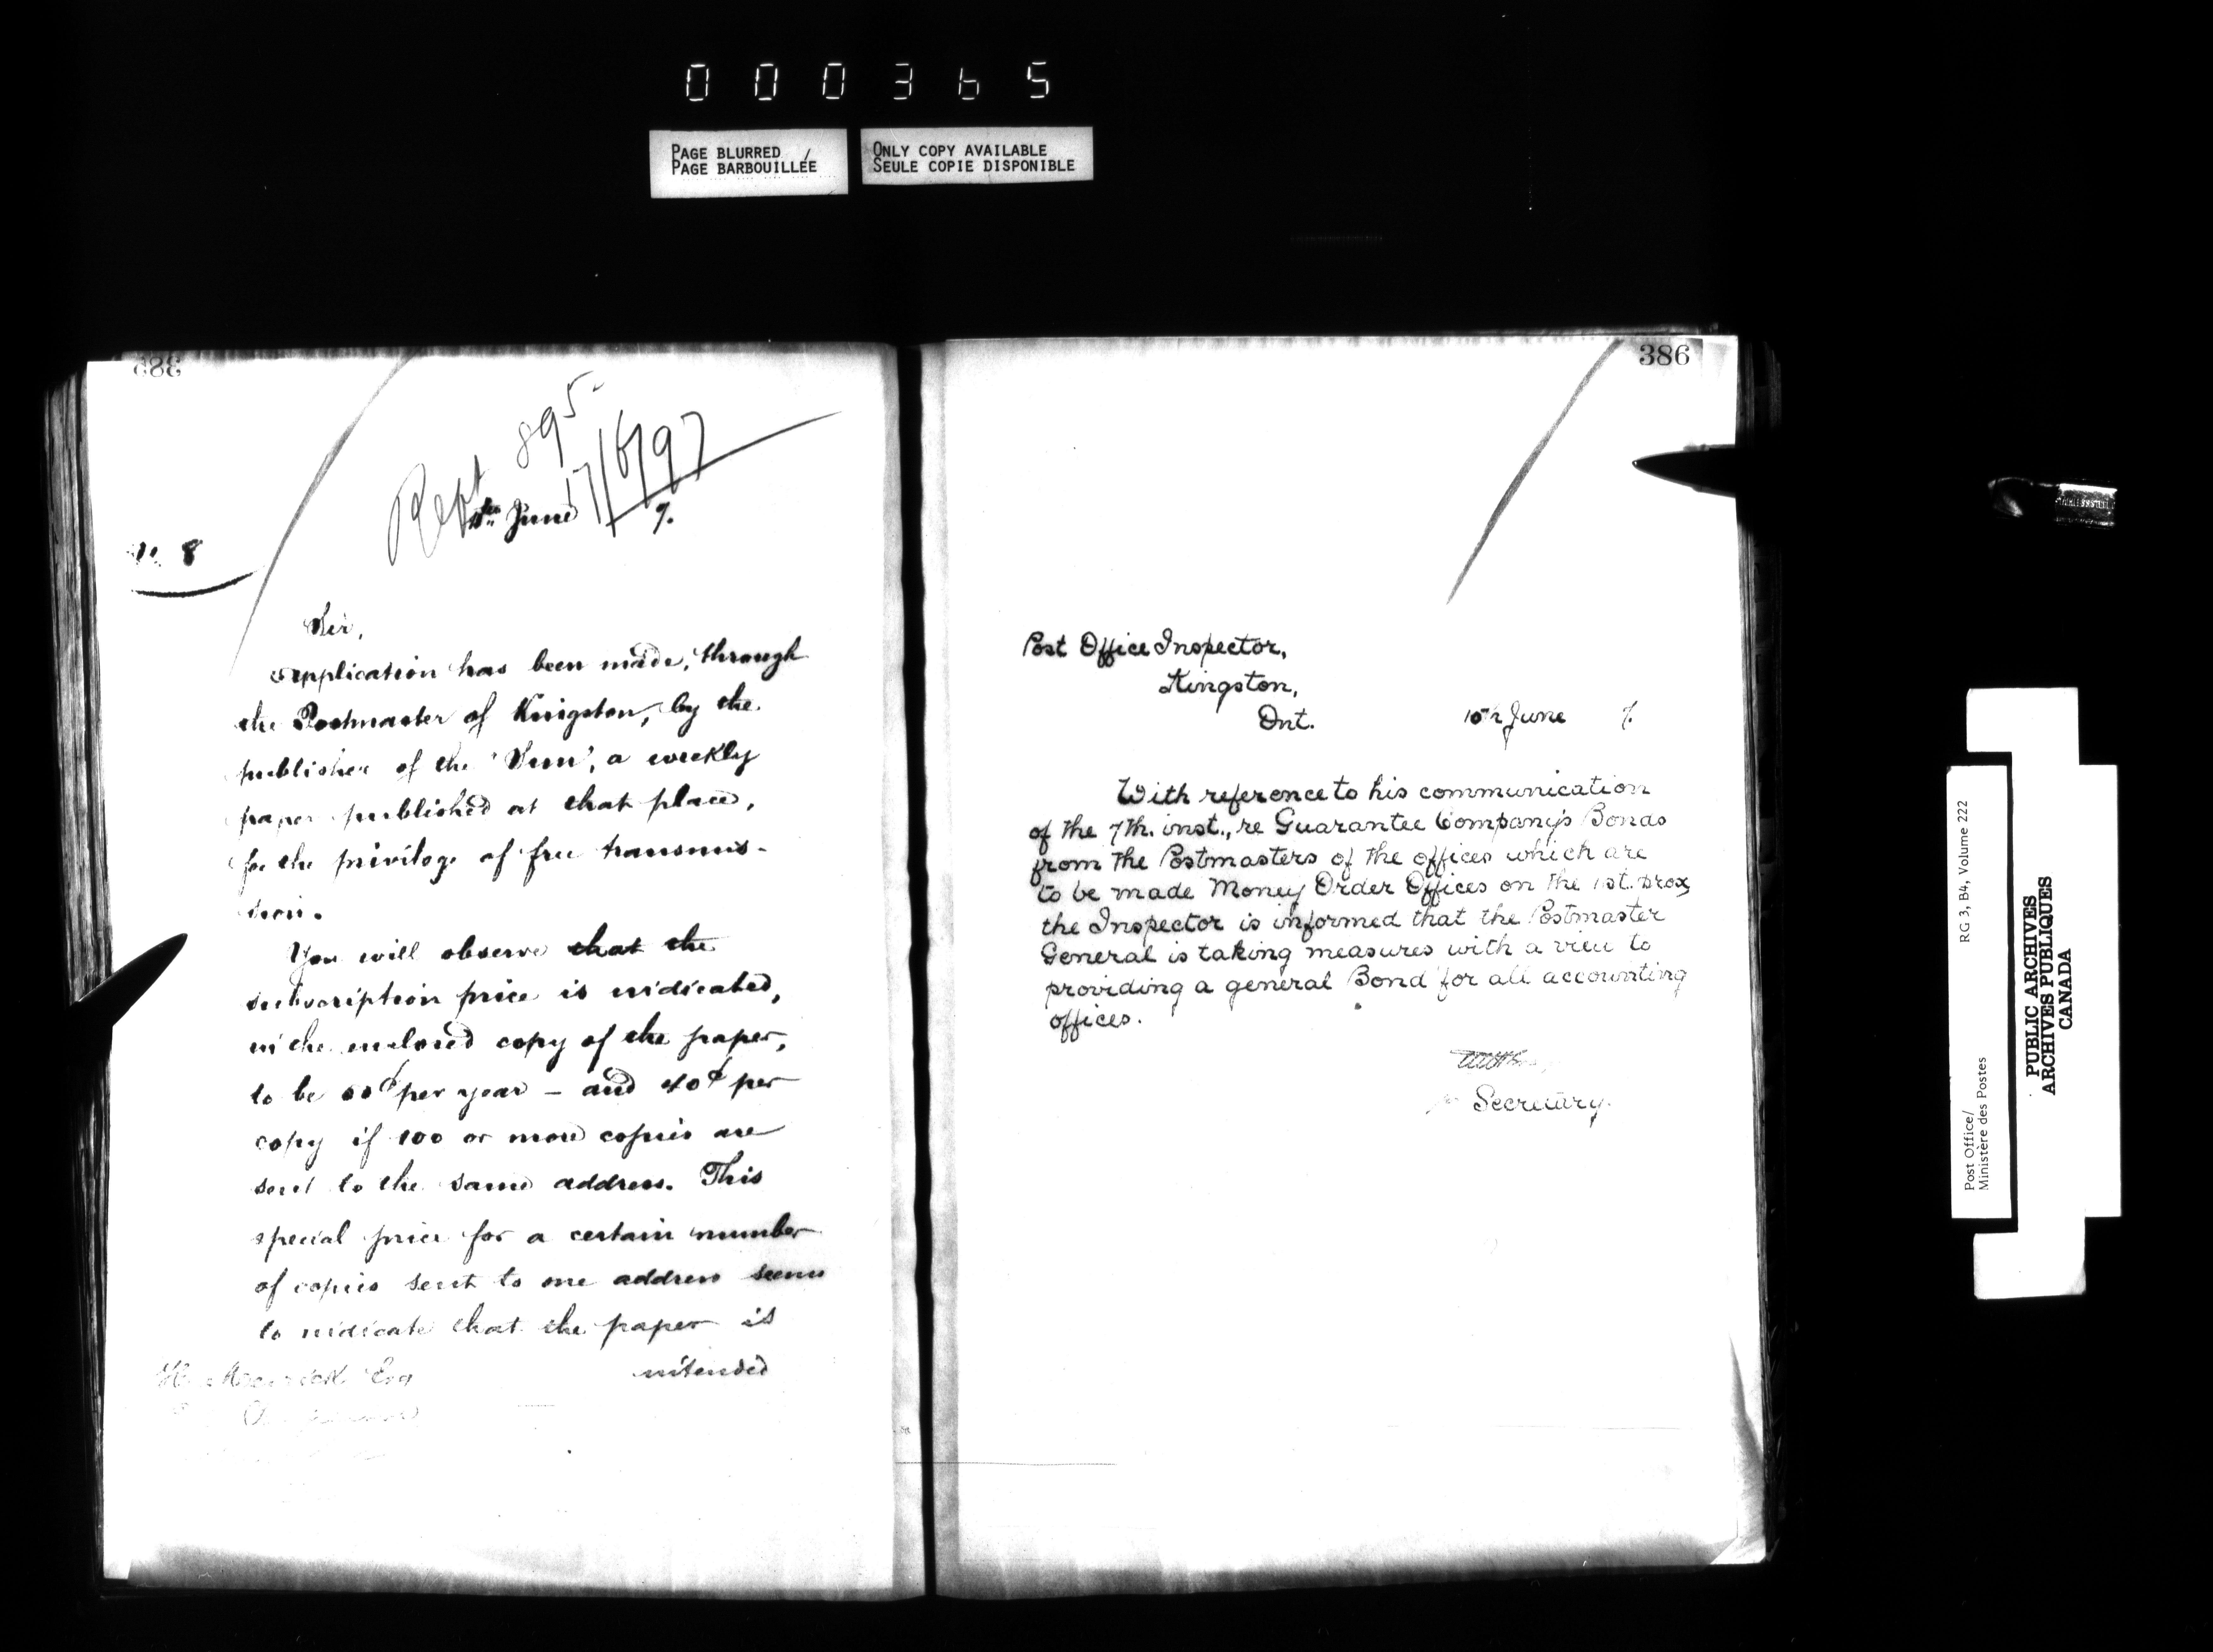 000365
PAGE BLURRED
PAGE BARBOUILLÉE
ONLY COPY AVAILABLE
SEULE COPIE DISPONIBLE
Rept 895
17/6/97
June 7.
No. 8
Sir,
Application has been made, through
the Postmaster of Kingston, by the
publisher of the 'Sun', a weekly
paper published at that place,
for the privilege of free transmis-
sion.
You will observe that the
subscription price is indicated,
in the enclosed copy of the paper,
to be ¢ per year – and 40¢ per
copy if 100 or more copies are
sent to the same address. This
special price for a certain number
of copies sent to one address seems
to indicate that the paper is
intended
Esq
386
Post Office Inspector,
Kingston,
Ont.
10th June 7.
With reference to his communication
of the 7th. inst., re Guarantee Company's Bonds
from the Postmasters of the offices which are
to be made Money Order Offices on the 1st. prox,
the Inspector is informed that the Postmaster
General is taking measures with a view to
providing a general Bond for all accounting
offices.
Secretary.
Post Office/
Ministère des Postes
RG 3, B4, Volume 222
PUBLIC ARCHIVES
ARCHIVES PUBLIQUES
CANADA